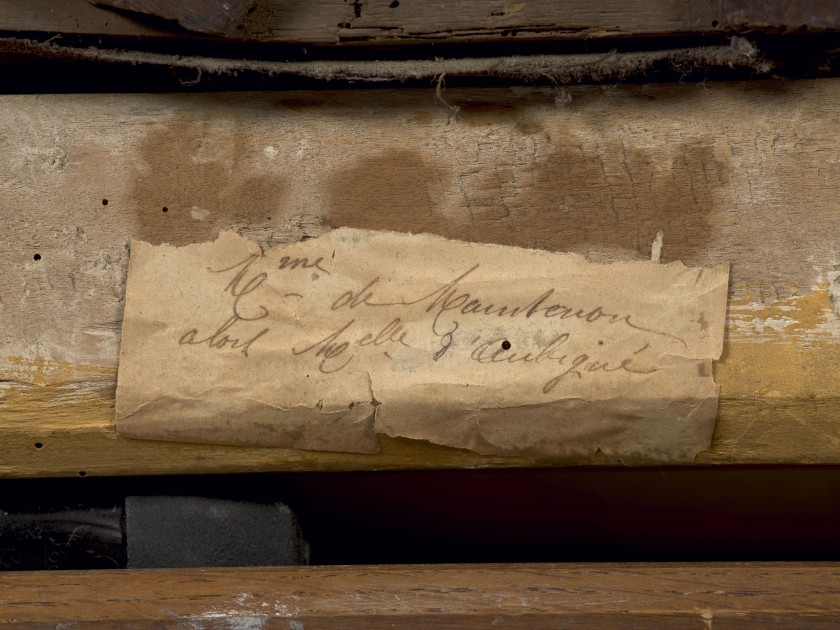 Mme de Maintenon
alors Melle d'Aubigné